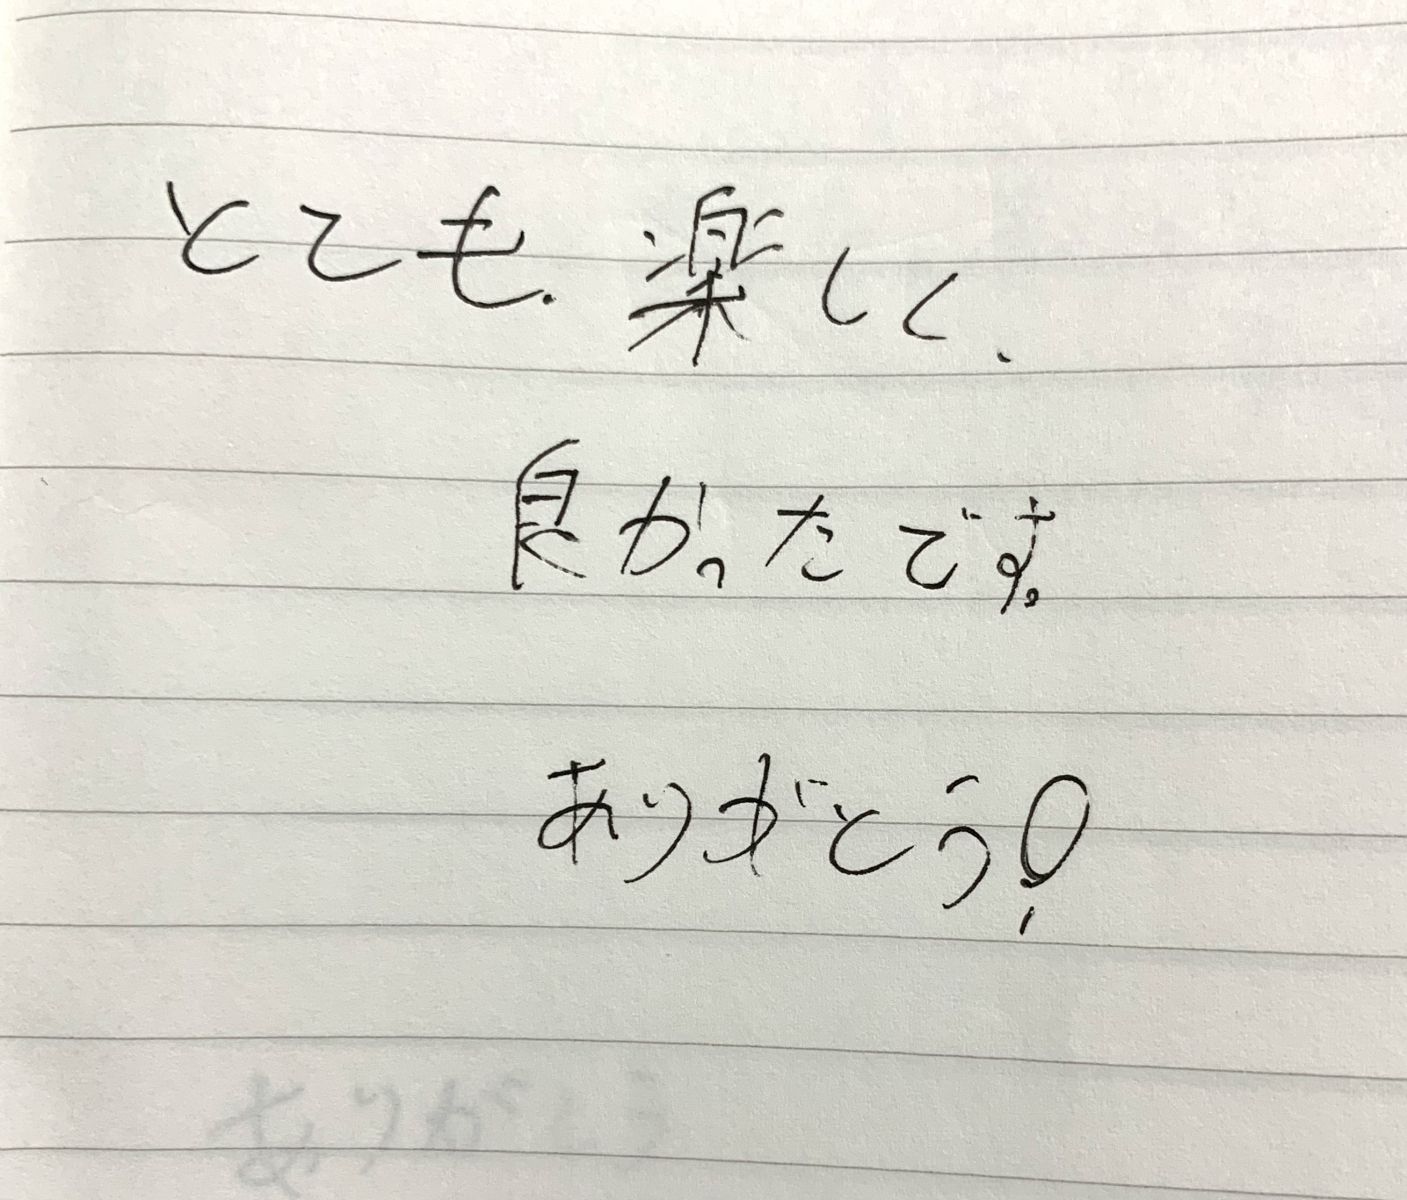 とても、楽しく、
良かったです。
ありがとう!
ありがとう